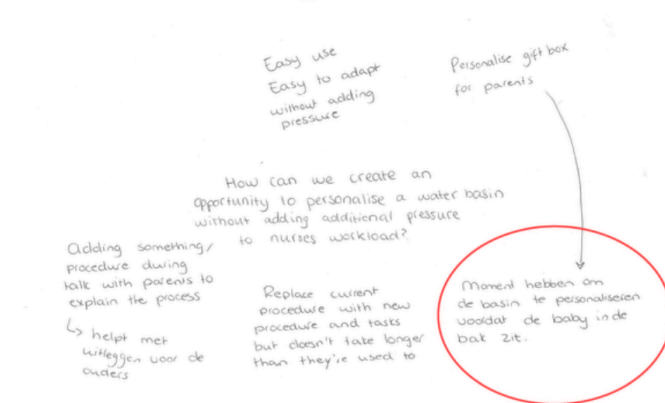 Easy use
Easy to adapt
without adding
pressure
Personalise gift box
for parents
How can we create an
opportunity to personalise a water basin
without adding additional pressure
to nurses workload?
Adding something/
procedure during
talk with parents to
explain the process
↳ helpt met
uitleggen voor de
ouders
Replace current
procedure with new
procedure and tasks
but doesn't take longer
than they're used to
Moment hebben om
de basin te personaliseren
voordat de baby in de
bak zit.